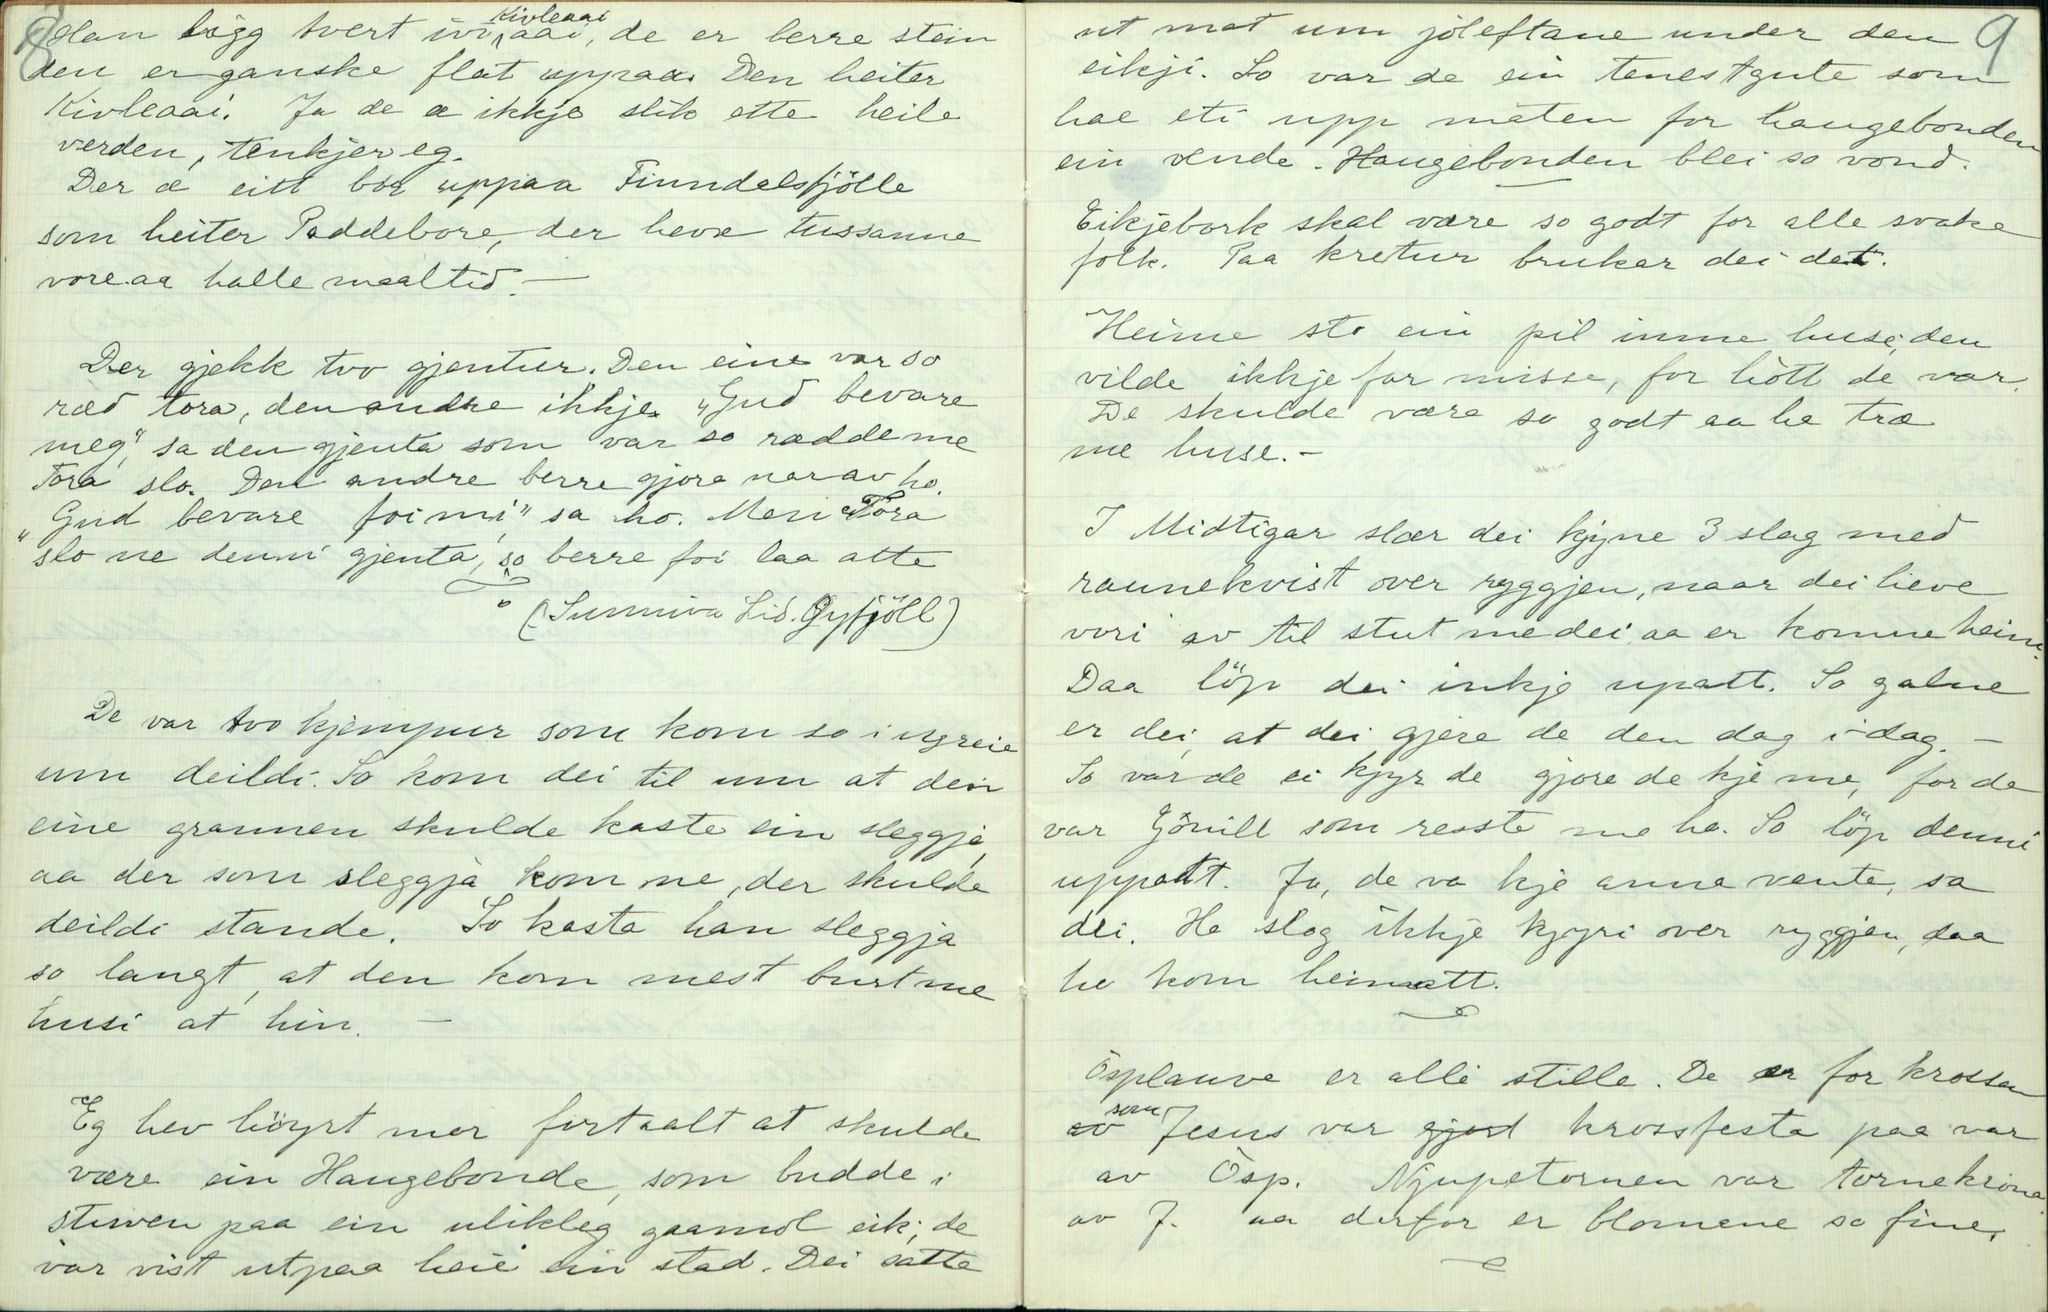 8
Han ligg tvert ivi Kivleaai aai, de er berre stein
den er ganske flat uppaa. Den heiter
Kivleaai. Ja de æ ikkje slik ette heile
verden, tenkjer eg.
Der æ eitt bór uppaa Finndalsfjölle
som heiter Paddebore, der heve tussanne
vore aa halle maaltid. —
Der gjekk tvo gjentur. Den eine var so
ræd tora, den andre ikkje. "Gud bevare
meg," sa den gjenta som var so rædde me
Tora slo. Den andre berre gjore nar av ho.
"Gud bevare foi mi," sa ho. Men Tora
slo ne denni gjenta, so berre foi laa atte
(Sunniva Lid. Gyfjöll)
De var tvo kjempur som kom so i ugreie
um deildi. So kom dei til um at den
eine grannen skulde kaste ein sleggje,
aa der som sleggja kom ne, der skulde
deildi stande. So kasta han sleggja
so langt, at den kom mest burt me
husi at hin. —
Eg hev höyrt mor fortaalt at skulde
være ein Haugebonde, som budde i
stuven paa ein ulikleg gaamol eik; de
var vist utpaa heie ein stad. Dei satte
9
ut mat um jóleftane under den
eikji. So var de ein tenestgute som
hae eti upp maten for haugebonden
ein vende. Haugebonden blei so vond.
Eikjebork skal være so godt for alle svake
folk. Paa kretur brukar dei det.
Heime sto ein pil inme huse, den
vilde ikkje far misse, for hótt de var.
De skulde være so godt aa he træ
me huse. -
I Midtigar slær dei kjyne 3 slag med
raunekvist over ryggjen, naar dei heve
vori av til stut medei aa er komne heim.
Daa löp dei inkje upatt. So galne
er dei, at dei gjere de den dag i dag. —
So var de ei kjyr de gjore de kje me, for de
var Gónill som resste me ho. So löp denni
uppatt. Ja, de va kje anna vente, sa
dei. Ho slog ikkje kjyri over ryggjen, daa
ho kom heimatt.
Ósplauve er alli stille. De er for krossen
av som Jesus var gjord krossfesta paa var
av Ósp. Njupetornen var tornekróna
av J. aa derfor er blomene so fine.